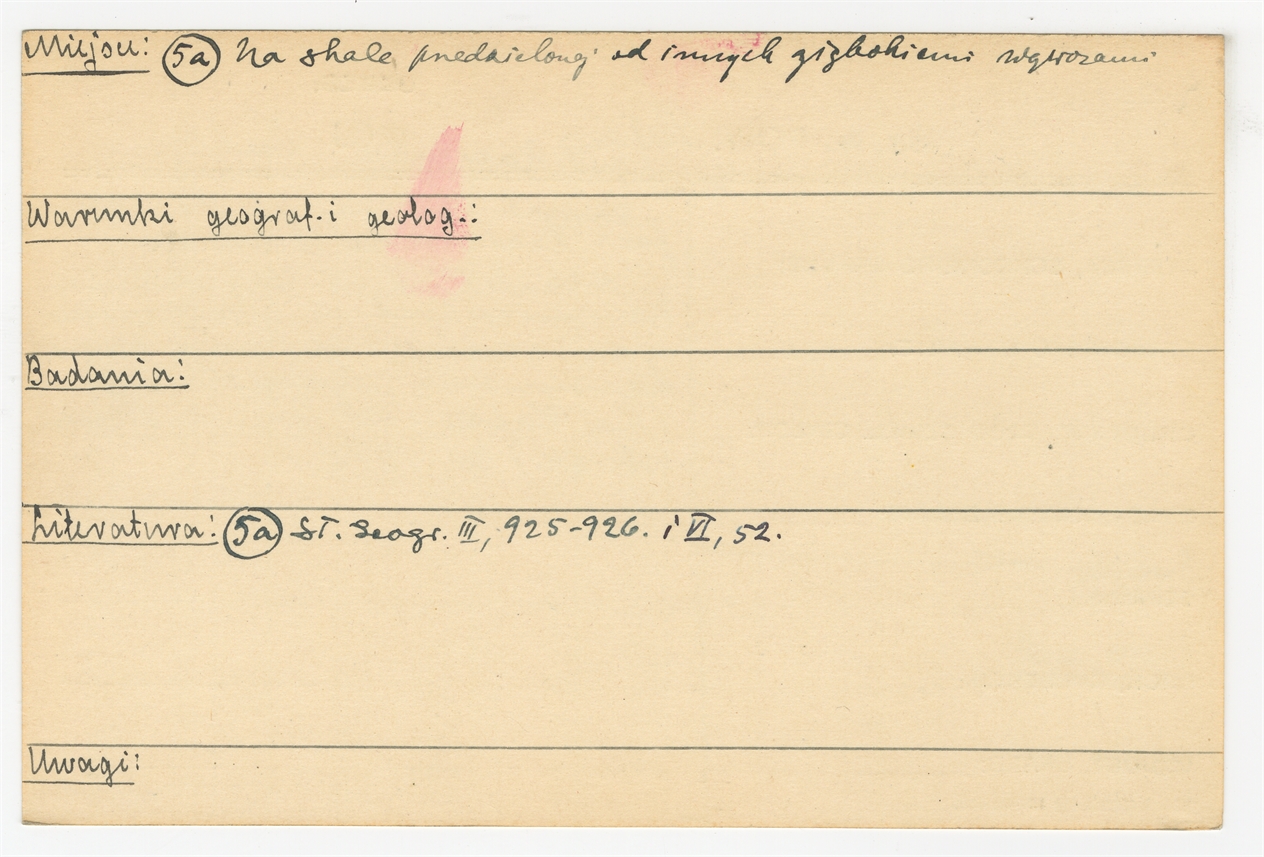 Miejsce: (5a) Na skale przedzielonej od innych głębokiemi wąwozami
Warunki geograf. i geolog.:
Badania:
Literatura: (5a) Sł. Geogr. III, 925-926. i VI, 52.
Uwagi: